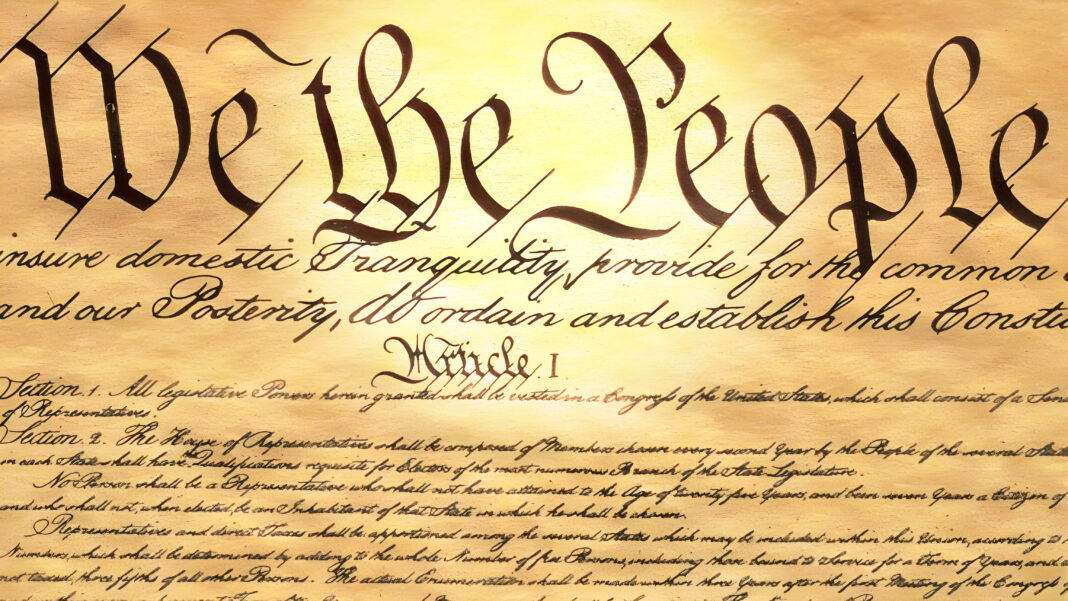 We the People
insure domestic Tranquility, provide for the common
and our Posterity, do ordain and establish this Constitu
Article. I
Section. 1. All legislative Powers herein granted shall be vested in a Congress of the United States, which shall consist of a Sen
of Representatives.
Section. 2. The House of Representatives shall be composed of Members chosen every second Year by the People of the several Stat
in each State shall have the Qualifications requisite for Electors of the most numerous Branch of the State Legislature.
No Person shall be a Representative who shall not have attained to the Age of twenty five Years, and been seven Years a Citizen of
and who shall not, when elected, be an Inhabitant of that State in which he shall be chosen.
Representatives and direct Taxes shall be apportioned among the several States which may be included within this Union, according to
Numbers, which shall be determined by adding to the whole Number of free Persons, including those bound to Service for a Term of Years, and
not taxed, three fifths of all other Persons. The actual Enumeration shall be made within three Years after the first Meeting of the Congress